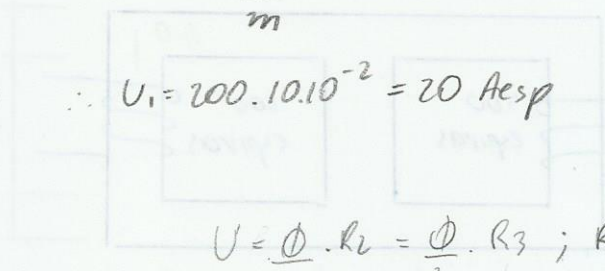 m
∴ U₁ = 200.10.10⁻² = 20 Aesp
U = Φ . R2 = Φ . R3 ;